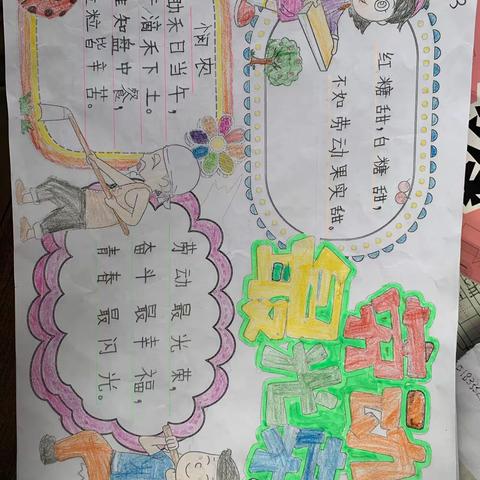 悯农
禾日当午，
滴禾下土。
知盘中餐，
粒皆辛苦。
红糖甜，白糖甜，
不如劳动果实甜。
劳动最光荣，
奋斗最幸福，
青春最闪光。
劳动
最光荣